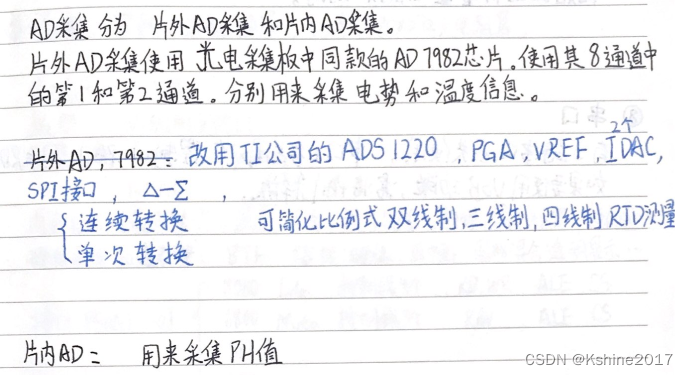 AD采集 分为 片外AD采集 和片内AD采集。
片外AD采集使用 光电采集板中同款的AD7982芯片。使用其8通道中
的第1和第2通道。分别用来采集 电势 和 温度信息。
片外AD, 7982: 改用TI公司的 ADS1220 , PGA, VREF, 2个IDAC,
SPI接口, Δ-Σ ,
{ 连续转换 可简化比例式 双线制, 三线制, 四线制 RTD测量
单次转换
片内AD: 用来采集 PH值
CSDN @Kshine2017